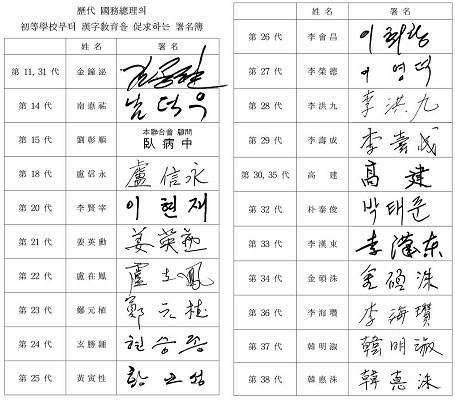 歷代 國務總理의
初等學校부터 漢字敎育을 促求하는 署名簿
姓 名 署 名
第 11, 31 代 金鐘泌 김종필
第 14 代 南悳祐 남덕우
第 15 代 劉彰順 本聯合會 顧問
臥病中
第 18 代 盧信永 盧信永
第 20 代 李賢宰 이현재
第 21 代 姜英勳 姜英勳
第 22 代 盧在鳳 盧在鳳
第 23 代 鄭元植 鄭元植
第 24 代 玄勝鍾 현승종
第 25 代 黃寅性 황인성
姓 名 署 名
第 26 代 李會昌 이회창
第 27 代 李榮德 이영덕
第 28 代 李洪九 李洪九
第 29 代 李壽成 李壽成
第 30, 35 代 高 建 高 建
第 32 代 朴泰俊 박태준
第 33 代 李漢東 李漢东
第 34 代 金碩洙 金碩洙
第 36 代 李海瓚 李海瓚
第 37 代 韓明淑 韓明淑
第 38 代 韓悳洙 韓悳洙